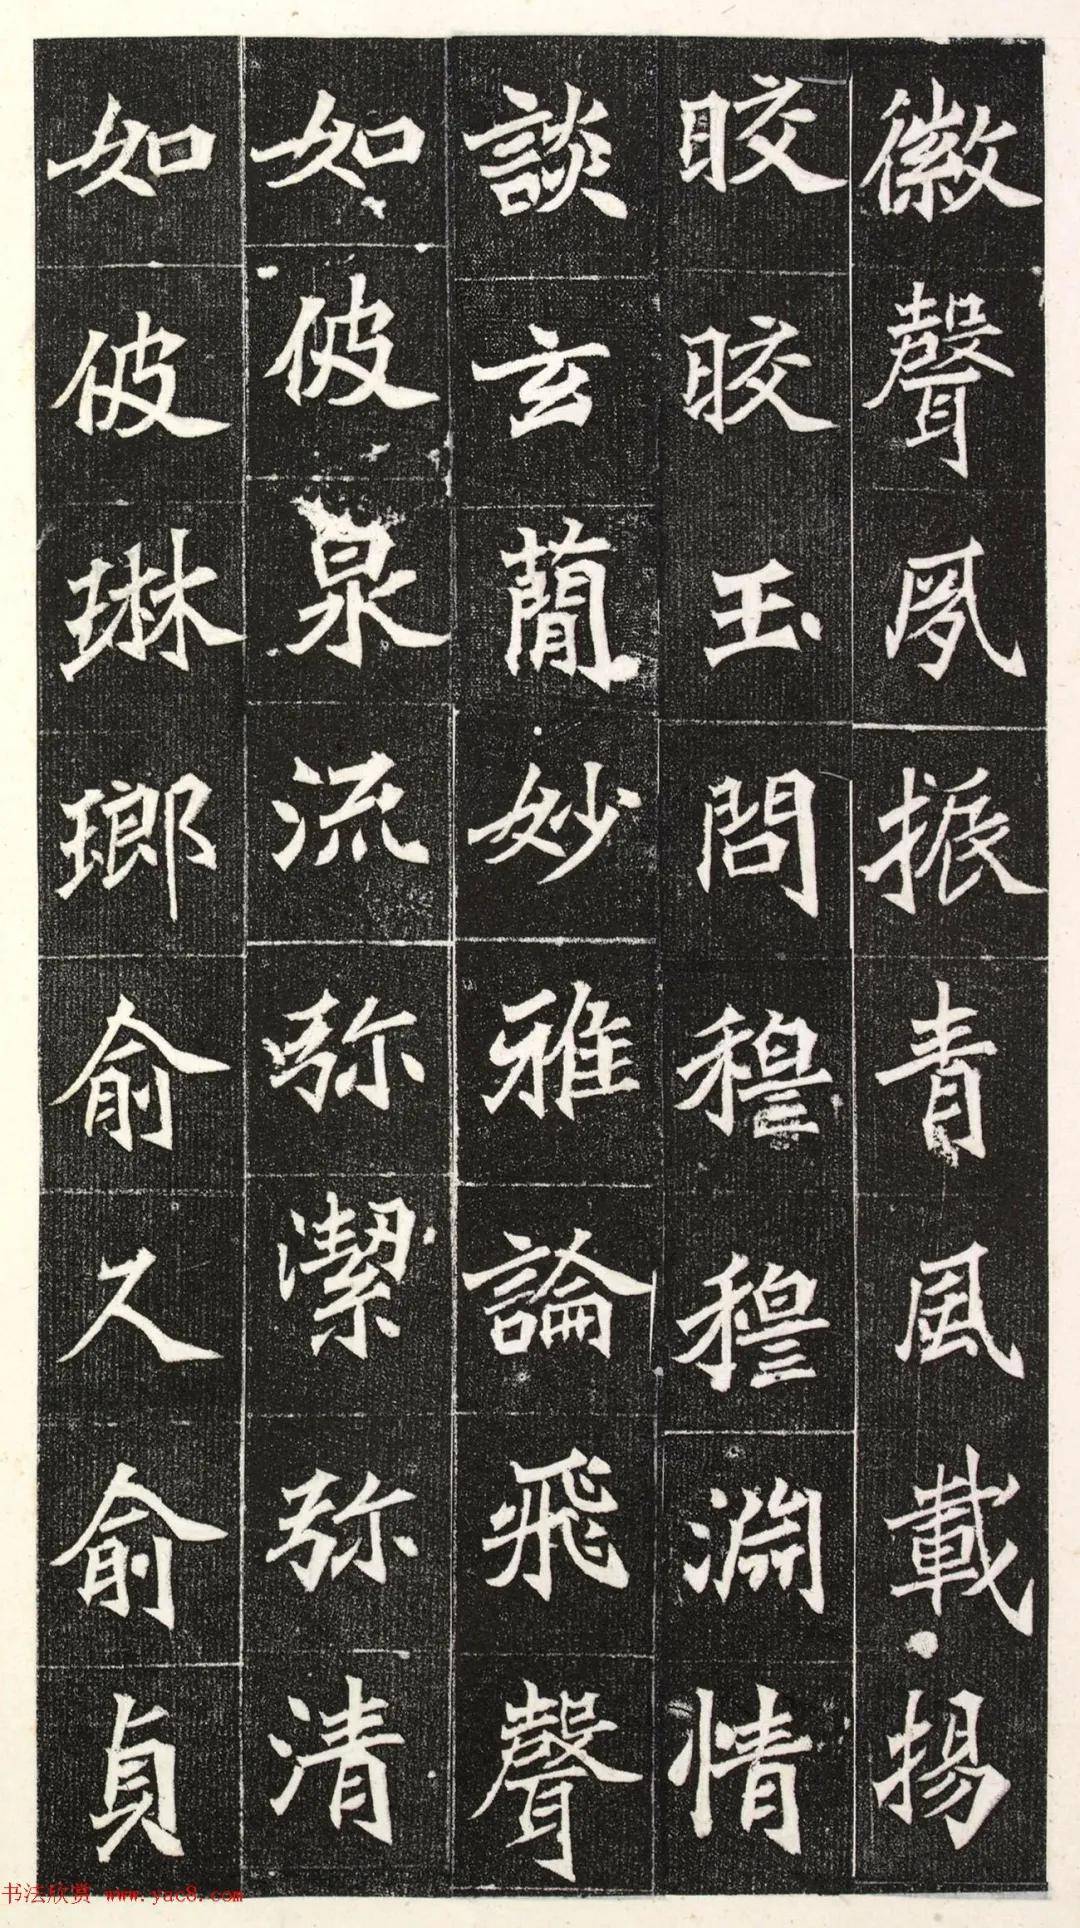 徽聲夙振青風載揚
晈晈玉問穆穆淵情
談玄蕳妙雅論飛聲
如彼泉流弥潔弥清
如彼琳瑯俞久俞貞
书法欣赏 www.yac8.com